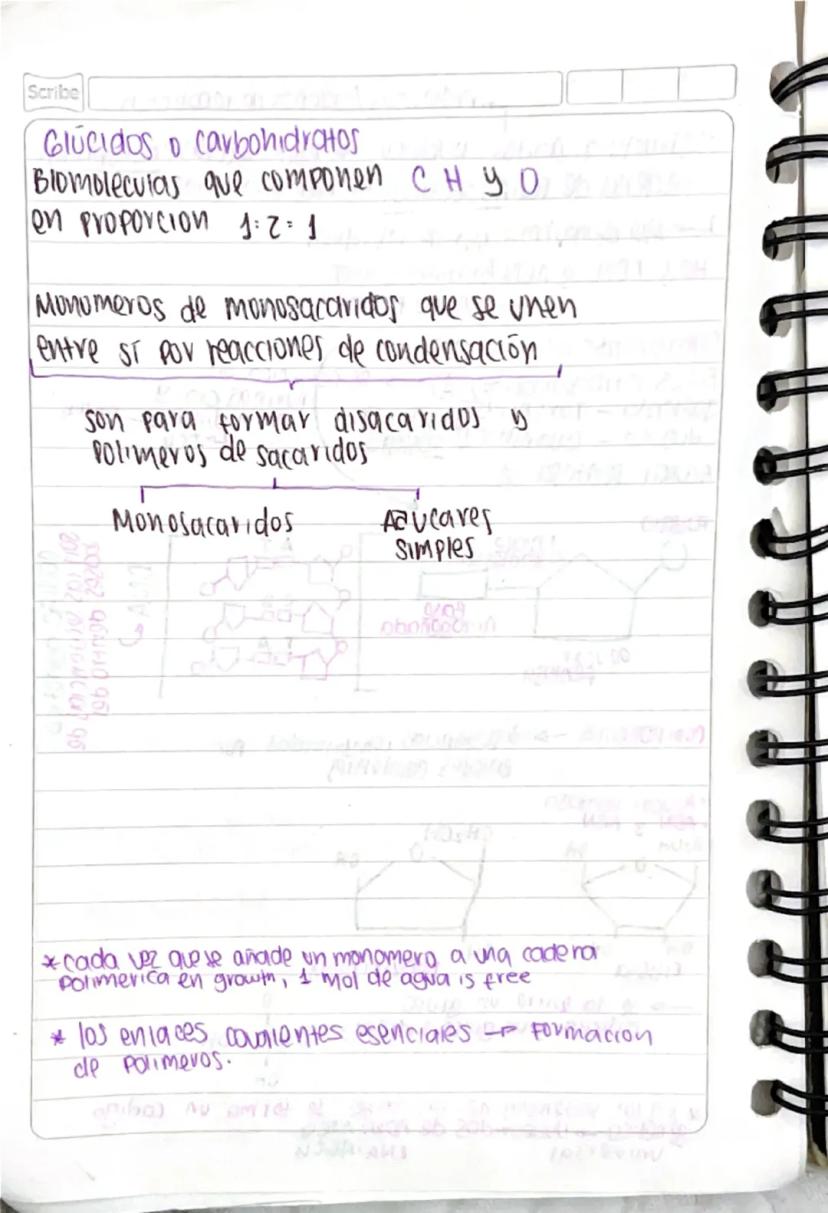 Scribe
Glúcidos o carbohidratos
Biomoleculas que componen C H y O
en proporcion 1:2:1
Monomeros de monosacaridos que se unen
entre sí por reacciones de condensación
son para formar disacaridos y
polimeros de sacaridos
Monosacaridos
Azucares
simples
*cada vez que se añade un monomero a una cadena
polimerica en growth, 1 mol de agua is free
* los enlaces covalentes esenciales → formacion
de polimeros.